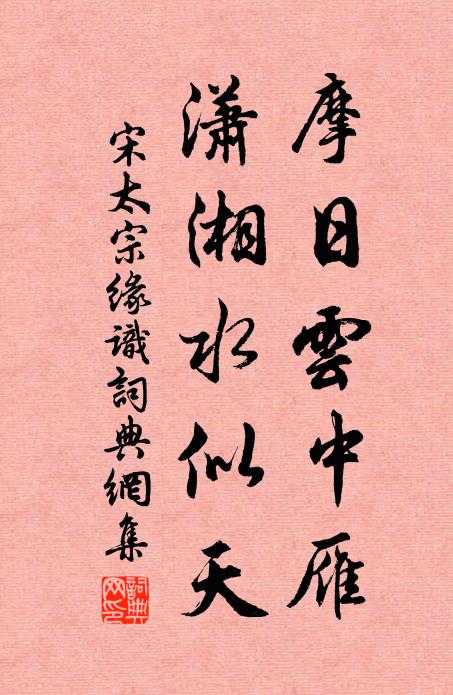 摩日雲中雁
瀟湘水似天
宋太宗緣識詞典網集
詞典网印